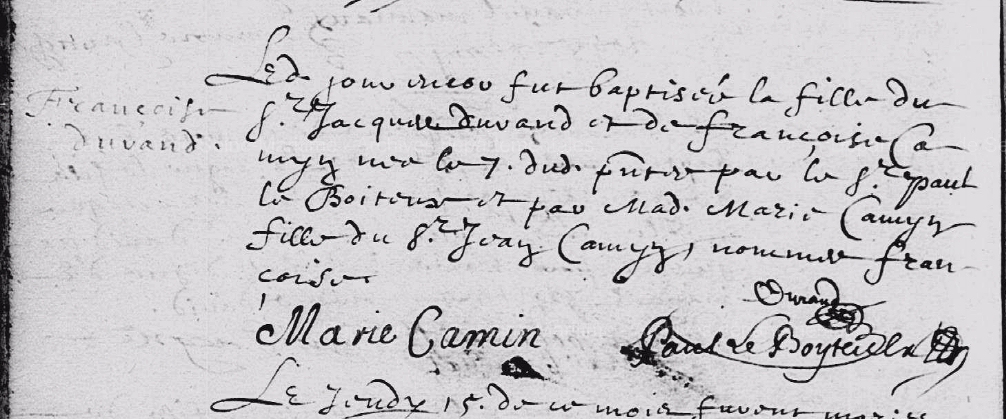 Françoise
durand.
Led. jour encor fut baptisée la fille du
S.r Jacques durand et de françoise Ca
myn nee le 7. dud. pntée par le S.r paul
le Boiteux et par Mad. Marie Camyn
fille du S.r Jean Camyn, nommee fran-
çoise
Durand
Marie Camin Paul Le Boyteulx
Le Jeudy 15. de ce mois furent mariés